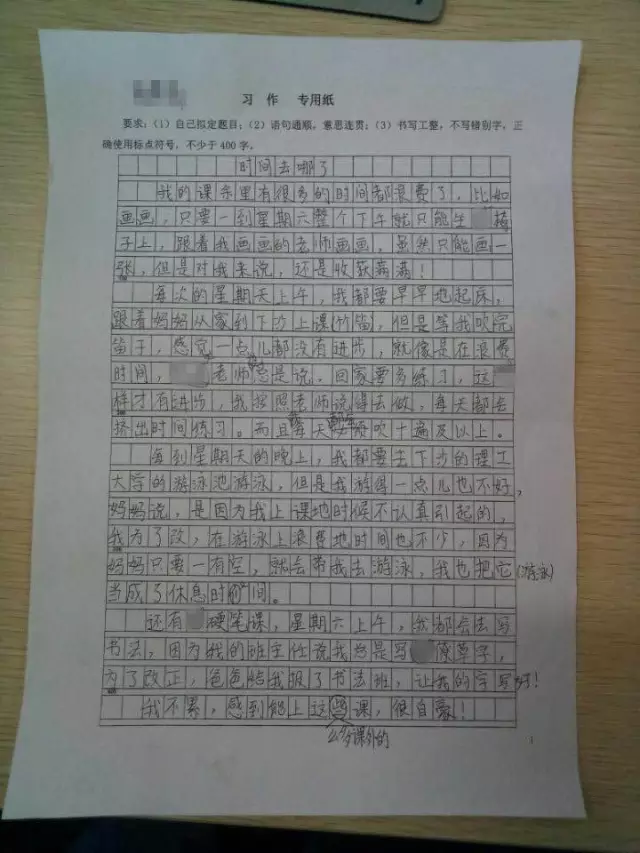 习 作 专用纸
要求：(1) 自己拟定题目；(2) 语句通顺，意思连贯；(3) 书写工整，不写错别字，正
确使用标点符号，不少于 400 字。
时间去哪了
我的课余里有很多的时间都浪费了，比如
画画，只要一到星期六整个下午就只能坐 椅
子上，跟着我画画的老师画画，虽然只能画一
张，但是对我来说，还是收获满满！
每次的星期天上午，我都要早早地起床，
跟着妈妈从家到下沙上课(竹笛，但是等我吹完
笛子，感觉一点儿都没有进步，就像是在浪费
时间， 老师总是说，回家要多练习，这
样才有进步，我按照老师说得去做，每天都会
挤出时间练习。而且每天都要吹十遍及以上。
每到星期天的晚上，我都要去下沙的理工
大学的游泳池游泳，但是我游得一点儿也不好，
妈妈说，是因为我上课地时候不认真引起的，
我为了改，在游泳上浪费地时间也不少，因为
妈妈只要一有空，就会带我去游泳，我也把它(游泳)
当成了休息时间。
还有 硬笔课，星期六上午，我都会去写
书法，因为我的班主任说我总是写 潦草字，
为了改正，爸爸给我报了书法班，让我的字写好！
我不累，感到能上这些课，很自豪！
么多课外的